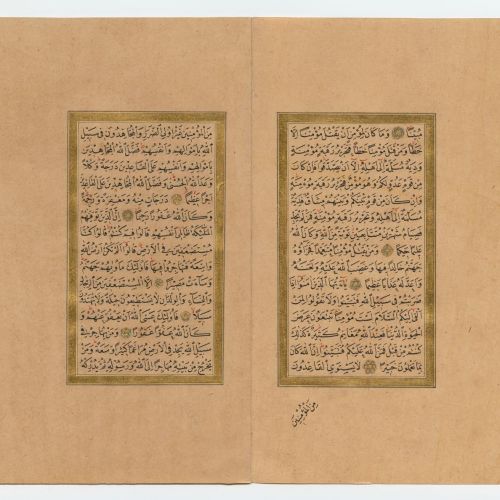 مُبِينًا وَمَا كَانَ لِمُؤْمِنٍ أَنْ يَقْتُلَ مُؤْمِنًا إِلَّا
خَطَأً وَمَنْ قَتَلَ مُؤْمِنًا خَطَأً فَتَحْرِيرُ رَقَبَةٍ مُؤْمِنَةٍ
وَدِيَةٌ مُسَلَّمَةٌ إِلَى أَهْلِهِ إِلَّا أَنْ يَصَّدَّقُوا فَإِنْ كَانَ
مِنْ قَوْمٍ عَدُوٍّ لَكُمْ وَهُوَ مُؤْمِنٌ فَتَحْرِيرُ رَقَبَةٍ مُؤْمِنَةٍ
وَإِنْ كَانَ مِنْ قَوْمٍ بَيْنَكُمْ وَبَيْنَهُمْ مِيثَاقٌ فَدِيَةٌ
مُسَلَّمَةٌ إِلَى أَهْلِهِ وَتَحْرِيرُ رَقَبَةٍ مُؤْمِنَةٍ فَمَنْ لَمْ يَجِدْ
فَصِيَامُ شَهْرَيْنِ مُتَتَابِعَيْنِ تَوْبَةً مِنَ اللهِ وَكَانَ اللهُ
عَلِيمًا حَكِيمًا وَمَنْ يَقْتُلْ مُؤْمِنًا مُتَعَمِّدًا فَجَزَاؤُهُ
جَهَنَّمُ خَالِدًا فِيهَا وَغَضِبَ اللهُ عَلَيْهِ وَلَعَنَهُ
وَأَعَدَّ لَهُ عَذَابًا عَظِيمًا يَا أَيُّهَا الَّذِينَ آمَنُوا إِذَا
ضَرَبْتُمْ فِي سَبِيلِ اللهِ فَتَبَيَّنُوا وَلَا تَقُولُوا لِمَنْ
أَلْقَى إِلَيْكُمُ السَّلَامَ لَسْتَ مُؤْمِنًا تَبْتَغُونَ عَرَضَ
الْحَيٰوةِ الدُّنْيَا فَعِنْدَ اللهِ مَغَانِمُ كَثِيرَةٌ كَذٰلِكَ
كُنْتُمْ مِنْ قَبْلُ فَمَنَّ اللهُ عَلَيْكُمْ فَتَبَيَّنُوا إِنَّ اللهَ كَانَ
بِمَا تَعْمَلُونَ خَبِيرًا لَا يَسْتَوِي الْقَاعِدُونَ
مِنَ الْمُؤْمِنِينَ
مِنَ الْمُؤْمِنِينَ غَيْرُ أُولِي الضَّرَرِ وَالْمُجَاهِدُونَ فِي سَبِيلِ
اللهِ بِأَمْوَالِهِمْ وَأَنْفُسِهِمْ فَضَّلَ اللهُ الْمُجَاهِدِينَ
بِأَمْوَالِهِمْ وَأَنْفُسِهِمْ عَلَى الْقَاعِدِينَ دَرَجَةً وَكُلًّا
وَعَدَ اللهُ الْحُسْنَى وَفَضَّلَ اللهُ الْمُجَاهِدِينَ عَلَى الْقَاعِدِينَ
أَجْرًا عَظِيمًا دَرَجَاتٍ مِنْهُ وَمَغْفِرَةً وَرَحْمَةً
وَكَانَ اللهُ غَفُورًا رَحِيمًا إِنَّ الَّذِينَ تَوَفّٰيهُمُ
الْمَلٰئِكَةُ ظَالِمِي أَنْفُسِهِمْ قَالُوا فِيمَ كُنْتُمْ قَالُوا كُنَّا
مُسْتَضْعَفِينَ فِي الْأَرْضِ قَالُوا أَلَمْ تَكُنْ أَرْضُ اللهِ
وَاسِعَةً فَتُهَاجِرُوا فِيهَا فَأُولٰئِكَ مَأْوٰيهُمْ جَهَنَّمُ
وَسَاءَتْ مَصِيرًا إِلَّا الْمُسْتَضْعَفِينَ مِنَ الرِّجَالِ
وَالنِّسَاءِ وَالْوِلْدَانِ لَا يَسْتَطِيعُونَ حِيلَةً وَلَا يَهْتَدُونَ
سَبِيلًا فَأُولٰئِكَ عَسَى اللهُ أَنْ يَعْفُوَ عَنْهُمْ وَ
كَانَ اللهُ عَفُوًّا غَفُورًا وَمَنْ يُهَاجِرْ فِي
سَبِيلِ اللهِ يَجِدْ فِي الْأَرْضِ مُرَاغَمًا كَثِيرًا وَسَعَةً وَمَنْ
يَخْرُجْ مِنْ بَيْتِهِ مُهَاجِرًا إِلَى اللهِ وَرَسُولِهِ ثُمَّ يُدْرِكْهُ